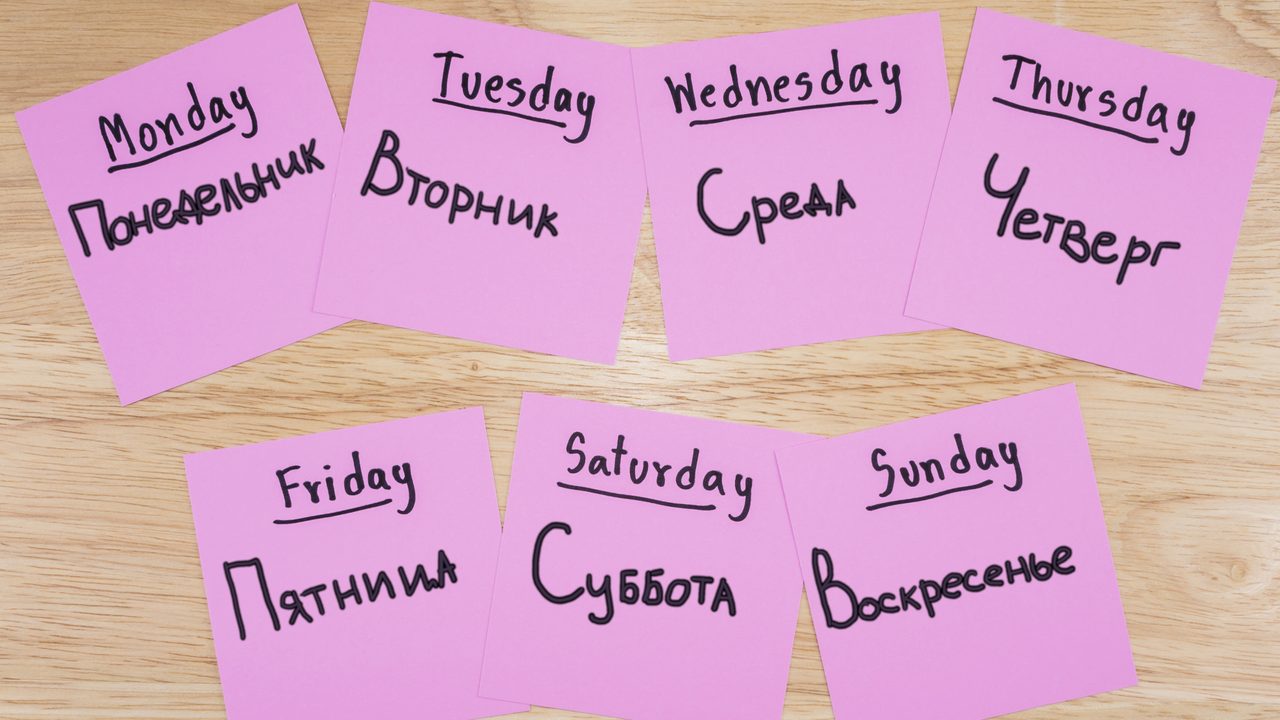 Monday
Понедельник
Tuesday
Вторник
Wednesday
Среда
Thursday
Четверг
Friday
Пятница
Saturday
Суббота
Sunday
Воскресенье